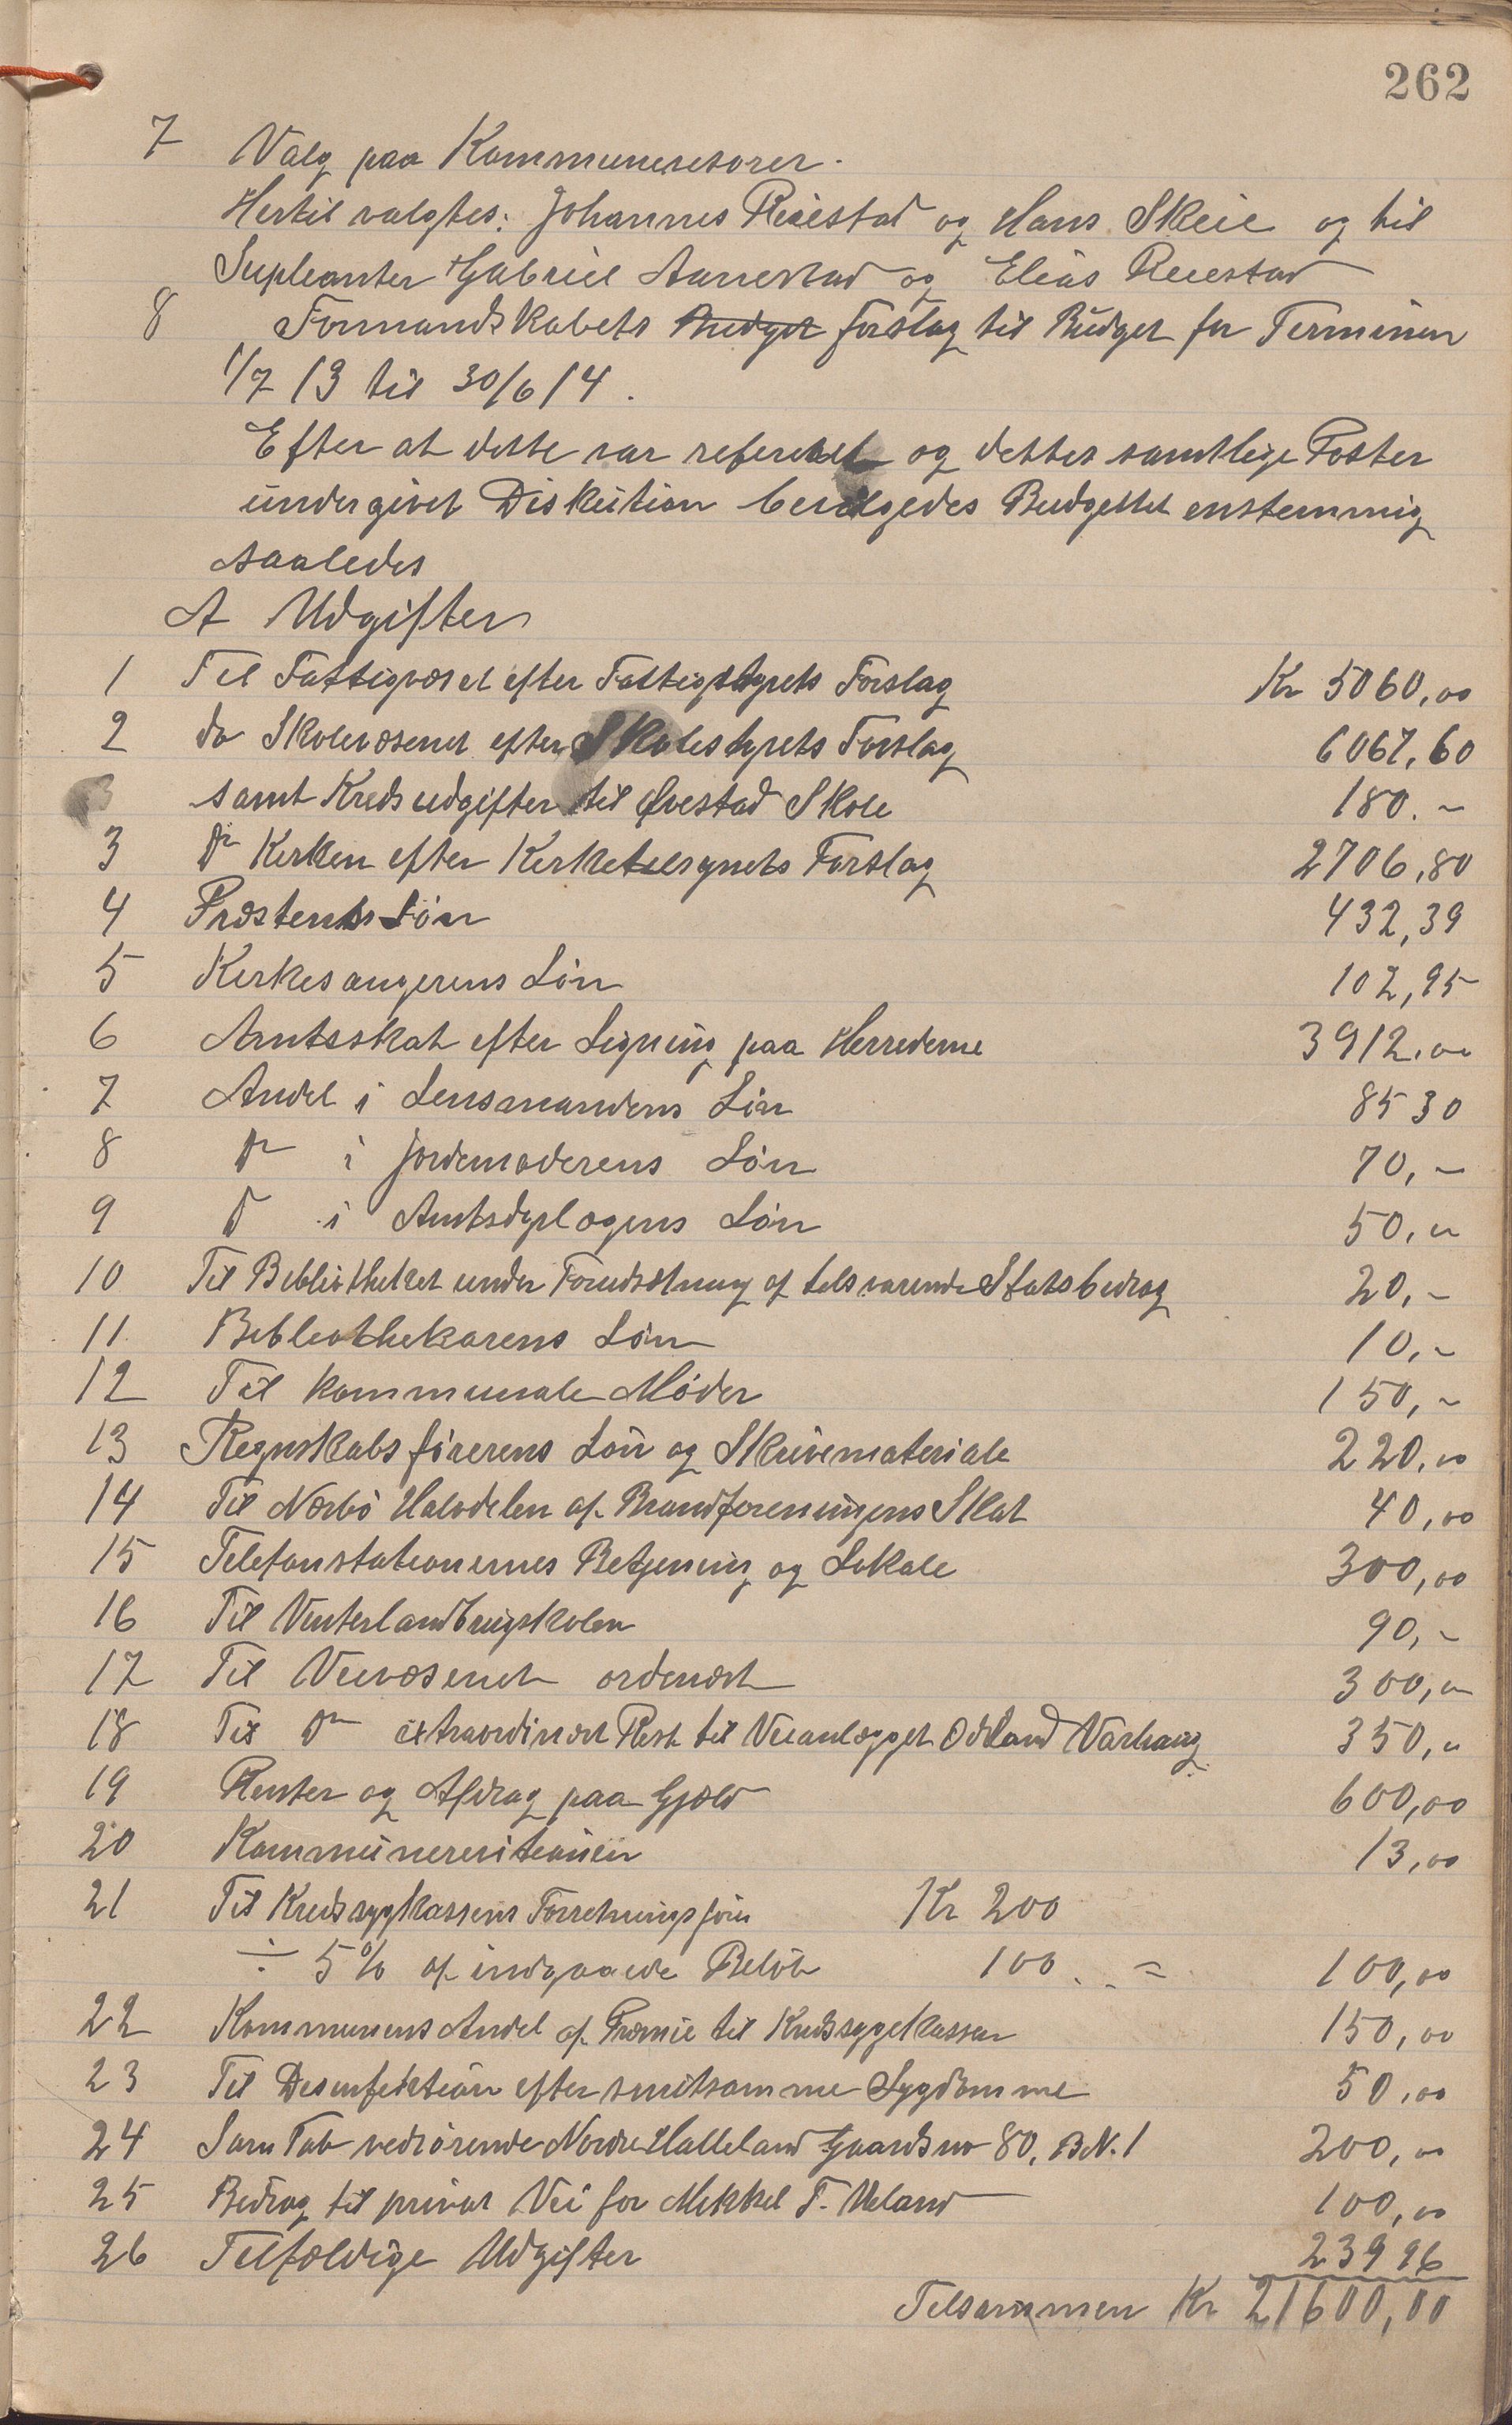 262
7 Valg paa Kommunerevisorer.
Hertil valgtes: Johannes Reiestad og Hans Skeie og til
Supleanter Gabriel Aanestad og Elias Reiestad
8 Formandskabets Budget forslag til Budget for Terminen
1/7 13 til 30/6 14.
Efter at dette var refereret og dettes samtlige Poster
undergivet Diskution bevilgedes Budgettet enstemmig
saaledes
A Udgifter
1 Til Fattigvæsel efter Fattigstyrets Forslag Kr 5060,00
2 do Skolevæsenet efter Skolestyrets Forslag 6067,60
samt Kredsudgifter til Øvestad Skole 180.-
3 Do Kirken efter Kirketilsynets Forslag 2706,80
4 Prestens Løn 432,39
5 Kirkesangerens Løn 102,95
6 Amtsskat efter Ligning paa Herrederne 3912,00
7 Andel i Lensmandens Løn 85 30
8 Do i Jordemoderens Løn 70,-
9 Do i Amtsdyrlægens Løn 50,00
10 Til Bibliotheket under Forudsætning af tilsvarende Statsbidrag 20,-
11 Bibliothekarens Løn 10,-
12 Til kommunale Møder 150,-
13 Regnskabsførerens Løn og Skrivemateriale 220,00
14 Til Nærbø Halvdelen af Brandforeningens Skat 40,00
15 Telefonstationernes Betjening og Lokale 300,00
16 Til Vinterlandbrugskolen 90,-
17 Til Veivæsenet ordinært 300,00
18 Til Do extraordinært Rest til Veianlægget Odland Varhaug 350,00
19 Renter og Afdrag paa Gjæld 600,00
20 Kommunerevitionen 13,00
21 Til Kredssygkassens Forretningsfører Kr 200
÷ 5% af indgaaede Beløb 100.. = 100,00
22 Kommunens Andel af Præmie til Kredssygekassen 150,00
23 Til Desinfektion efter smitsomme Sygdomme 50,00
24 Som Tab vedrørende Nordre Halleland Gaardsno 80, B.N. 1 200,00
25 Bidrag til privat Vei for Mikkel T. Ueland 100,00
26 Tilfældige Udgifter 239 96
Tilsammen Kr 21600,00